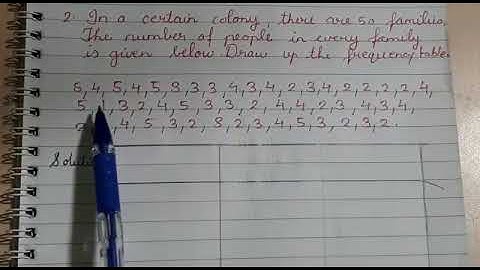 2. In a certain colony, there are 50 families.
The number of people in every family
is given below. Draw up the frequency table.
5, 4, 5, 4, 5, 3, 3, 3, 4, 3, 4, 2, 3, 4, 2, 2, 2, 2, 4,
5, 3, 2, 4, 5, 3, 3, 2, 4, 4, 2, 3, 4, 3, 4,
4, 5, 3, 2, 3, 2, 3, 4, 5, 3, 2, 3, 2.